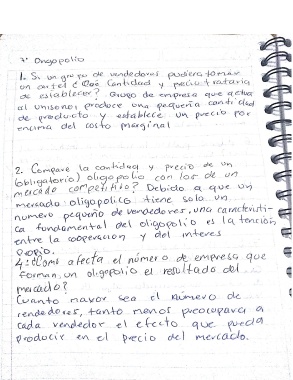 7. Ologopolio
1. Si un grupo de vendedores pudiera formar
un cartel ¿ Que Cantidad y precio trataria
de establecer? Grupo de empresa que actua
al unisono, produce una pequeña cantidad
de producto y establece un precio por
encima del costo marginal
2. Compare la cantidad y precio de un
(obligatorio) oligopolio con los de un
mercado competitivo? Debido a que un
mercado oligopolico tiene solo un
numero pequeño de vendedores, una caracteristi-
ca fundamental del oligopolio es la tención
entre la cooperacion y del interes
propio.
4: ¿Como afecta el número de empresa que
forman un oligopolio el resultado del
mercado?
Cuanto mayor sea el número de
vendedores, tanto menos preocupara a
cada vendedor el efecto que pueda
producir en el precio del mercado.